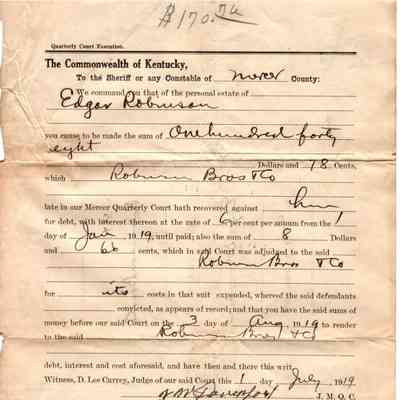 $170.74
Quarterly Court Execution.
The Commonwealth of Kentucky,
To the Sheriff or any Constable of Mercer County:
We command you that of the personal estate of
Edgar Robinson
you cause to be made the sum of One hundred forty
eight
Dollars and 18 Cents,
which Robinson Bros & Co
late in our Mercer Quarterly Court hath recovered against him
for debt, with interest thereon at the rate of 6 per cent per annum from the 1
day of Jan 1919, until paid; also the sum of 8 Dollars
and 66 cents, which in said Court was adjudged to the said
Robinson Bros & Co
for its costs in that suit expended, whereof the said defendants
convicted, as appears of record; and that you have the said sums of
money before our said Court on the 3 day of Aug, 1919 to render
to the said Robinson Bros & Co
debt, interest and cost aforesaid, and have then and there this writ.
Witness, D. Lee Currey, Judge of our said Court this 1 day of July 1919
J. M. Q. C.